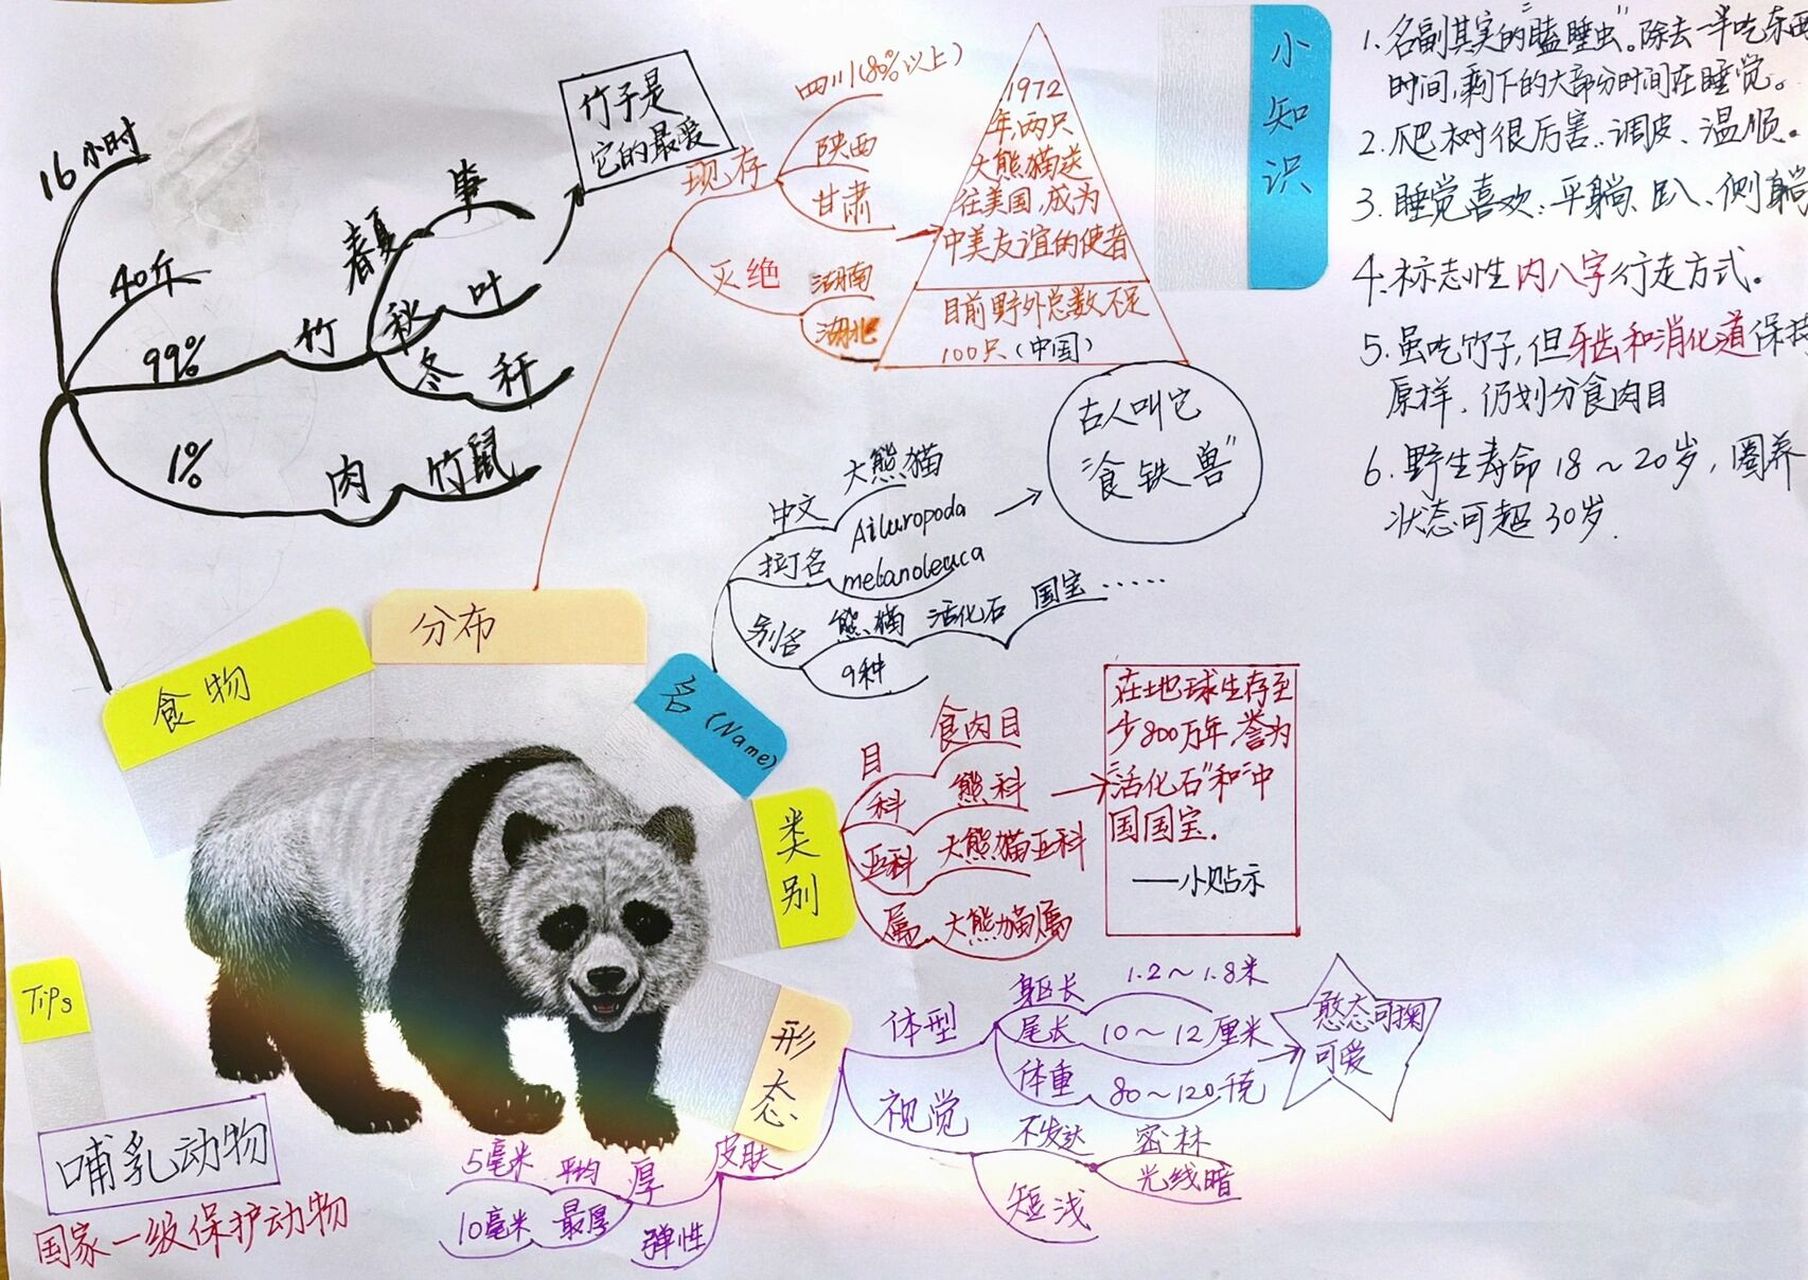 16小时
40斤
99%
竹
春夏
笋
秋
叶
冬
秆
竹子是
它的最爱
1%
肉
竹鼠
食物
现存
四川(80%以上)
陕西
甘肃
灭绝
湖南
湖北
1972
年,两只
大熊猫送
往美国,成为
中美友谊的使者
目前野外总数不足
100只(中国)
分布
中文
大熊猫
拉丁名
Ailuropoda
melanoleuca
别名
熊猫
活化石
国宝……
9种
古人叫它
"食铁兽"
名(Name)
目
食肉目
科
熊科
亚科
大熊猫亚科
属
大熊猫属
在地球生存至
少800万年,誉为
"活化石"和"中
国国宝.
——小贴示
类别
体型
身区长
1.2～1.8米
尾长
10～12厘米
体重
80～120千克
憨态可掬
可爱
视觉
不发达
密林
光线暗
短浅
形态
皮肤
厚
平均
5毫米
最厚
10毫米
弹性
Tips
哺乳动物
国家一级保护动物
小知识
1.名副其实的"瞌睡虫"。除去一半吃东西
时间,剩下的大部分时间在睡觉。
2.爬树很厉害、调皮、温顺。
3.睡觉喜欢:平躺、趴、侧躺
4.标志性内八字行走方式。
5.虽吃竹子,但牙齿和消化道保持
原样，仍划分食肉目
6.野生寿命18～20岁，圈养
状态可超30岁.